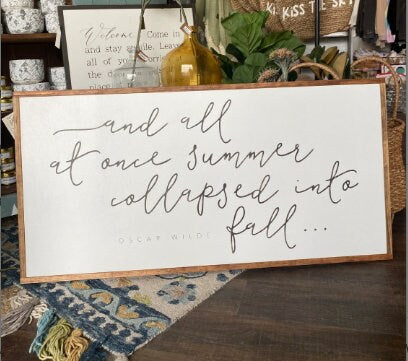 Welcome Come in
and stay awhile. Leave
all of your worries
the door
KISS THE SKY
and all
at once summer
collapsed into
fall...
OSCAR WILDE